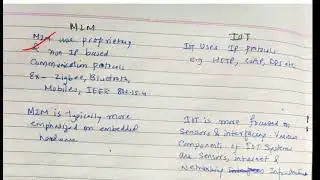 M2M
M2M use proprietary
non IP based
Communication protocols
Ex- Zigbee, Bluetooth,
Mobiles, IEEE 802.15.4
M2M is typically more
emphasized on embedded
hardware
IOT
IOT Uses IP Protocols
e.g. HTTP, CoAP, DDS etc
IoT is more focused on
Sensors & interfacing Various
Components of IoT Systems
are Sensors, internet &
Networking Infrastructure